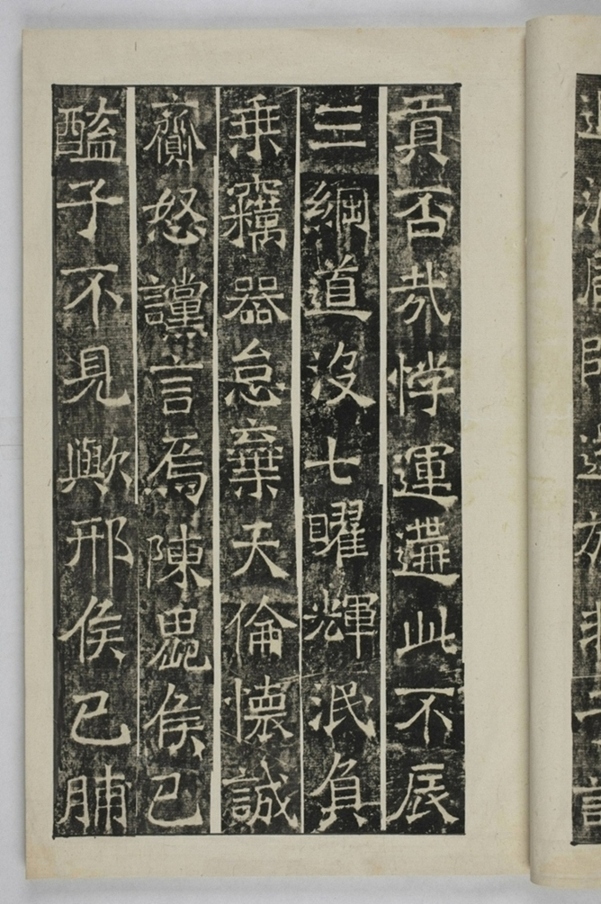 貢否哉悖運遘此不辰
三綱道沒七曜輝泯負
乘竊器怠棄天倫懷誠
齎怒讜言焉陳鬼侯已
醢子不見歟邢侯已脯